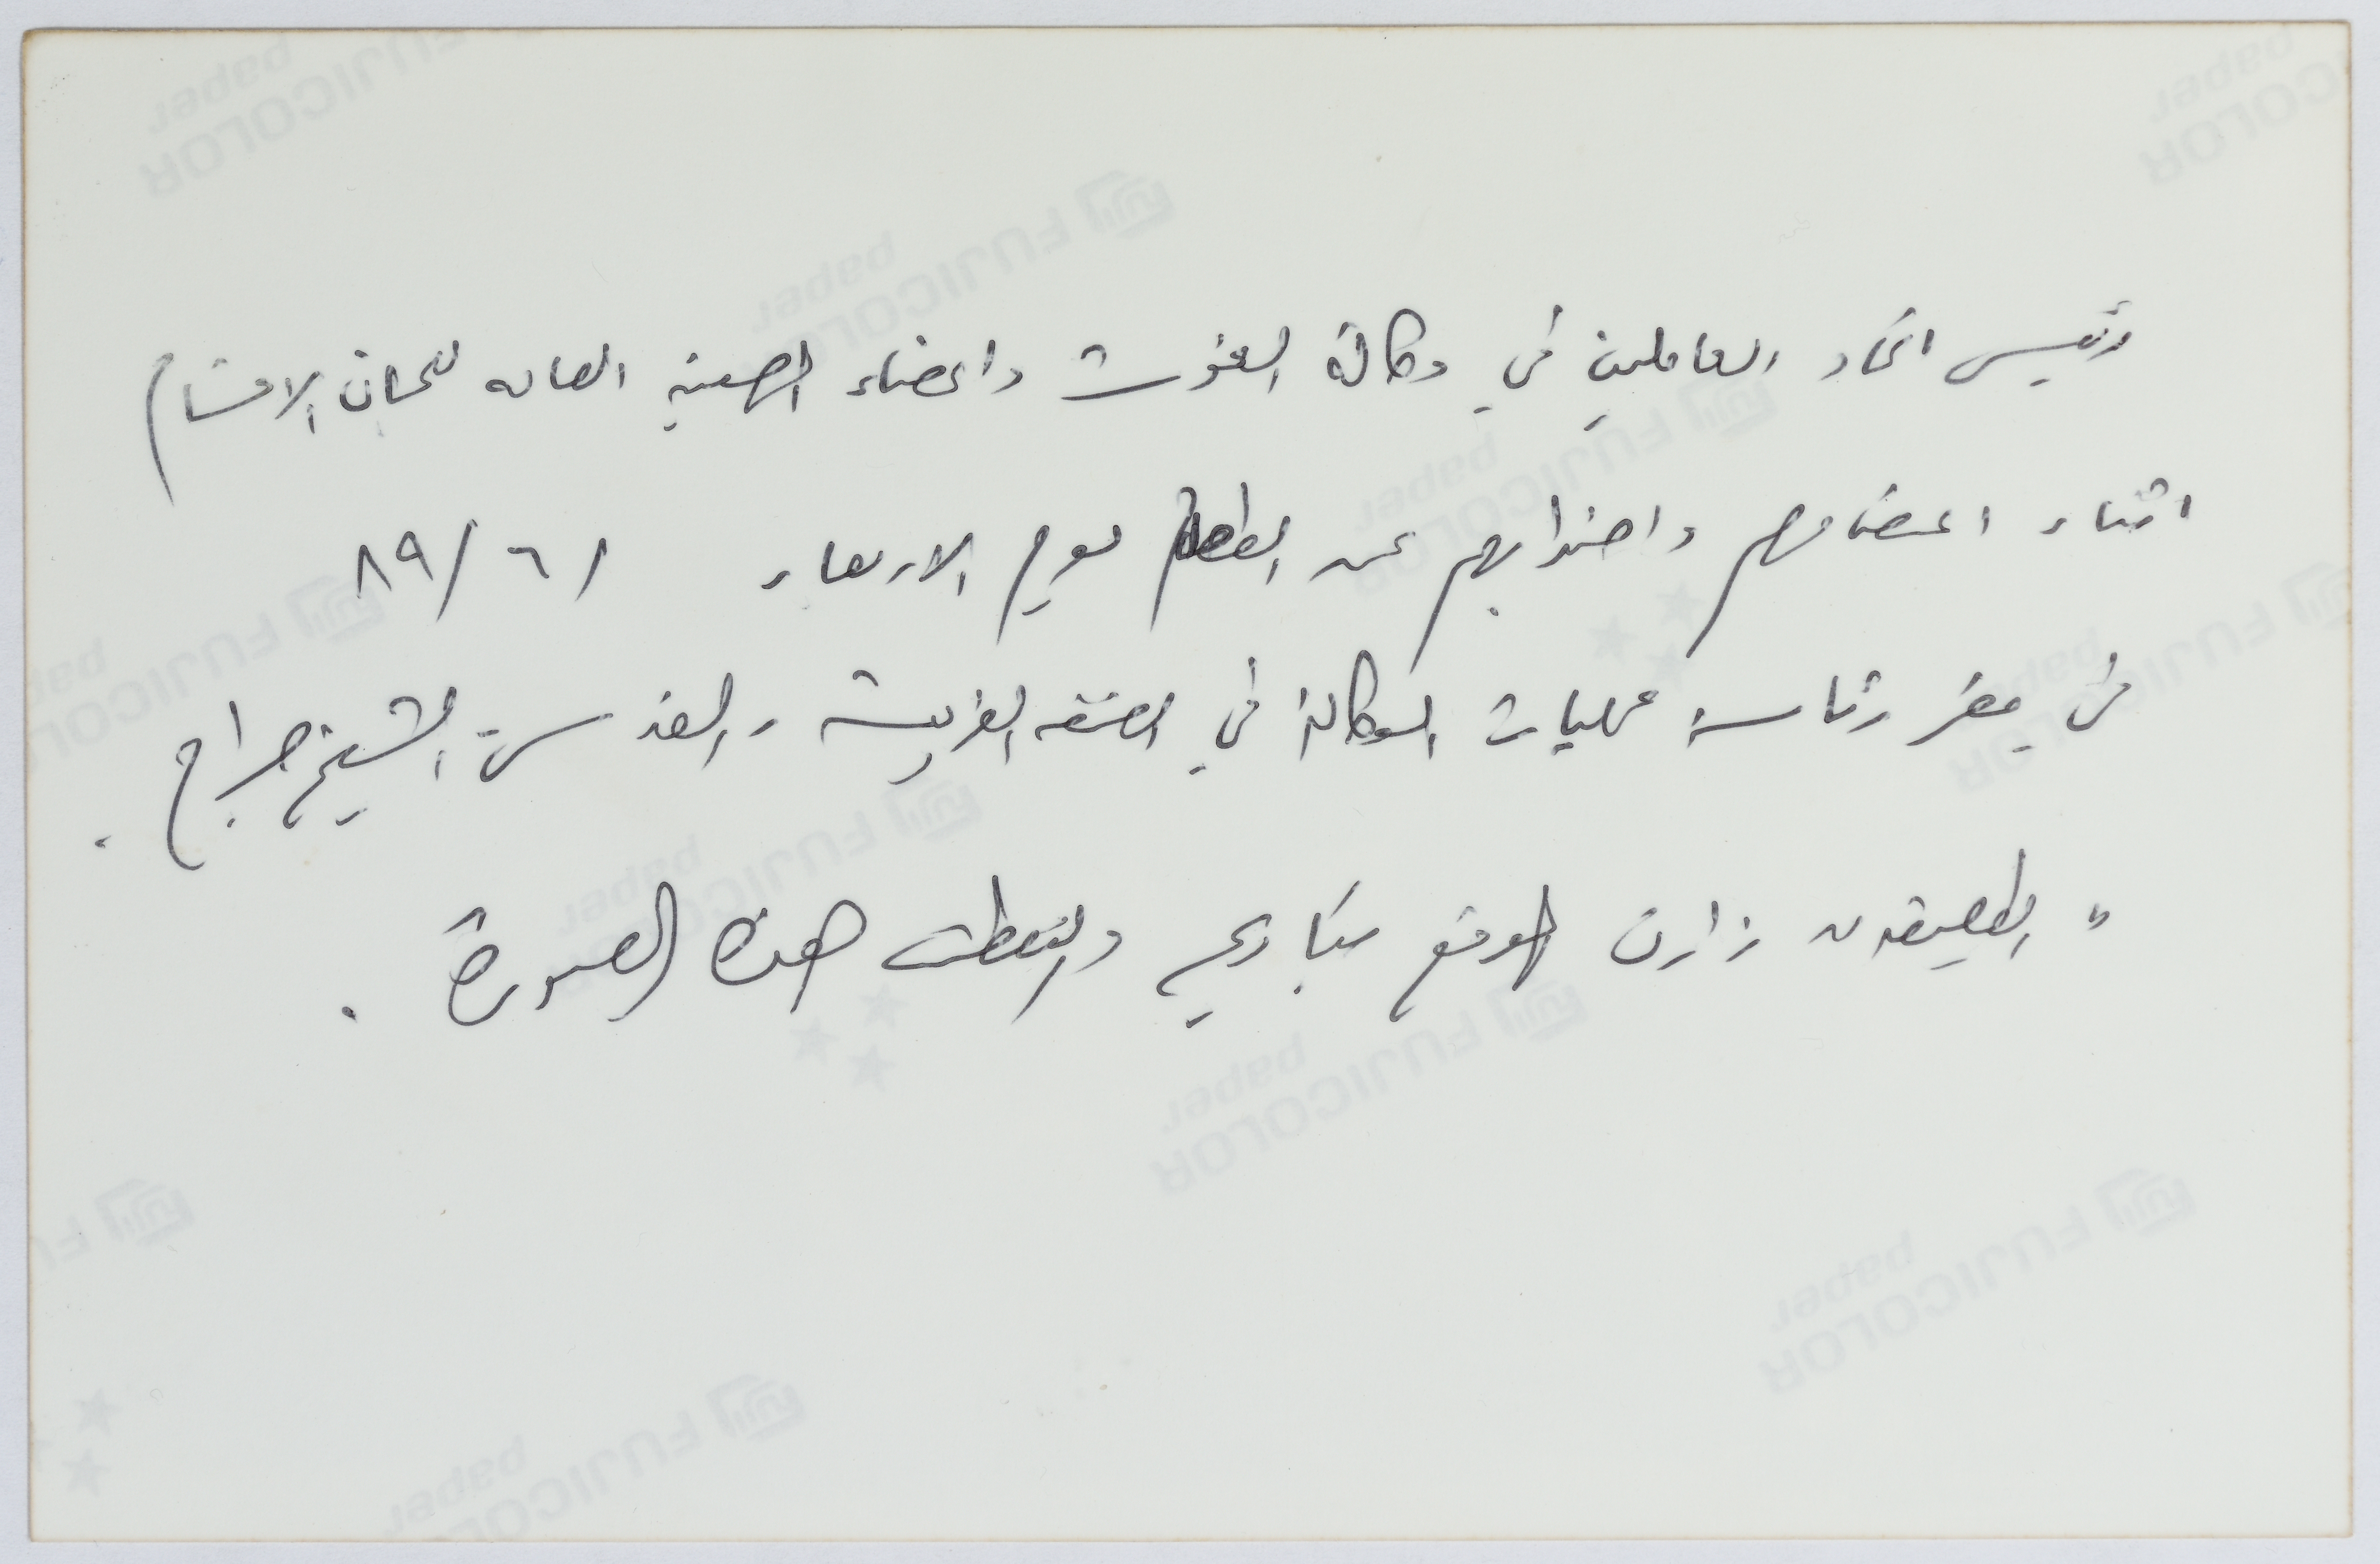 رئيس اتحاد العاملين في وكالة الغوث واعضاء الهيئة العامه للجان الاقسام
اثناء اعتصامهم واضرابهم عن الطعام يوم الاربعاء / ٦ / ٨٩
في مقر رئاسة عمليات الوكالة في الضفه الغربية - القدس - الشيخ جراح .
" الطليعة " زارت الموقع والتقطت هذه الصورة .
FUJICOLOR
paper